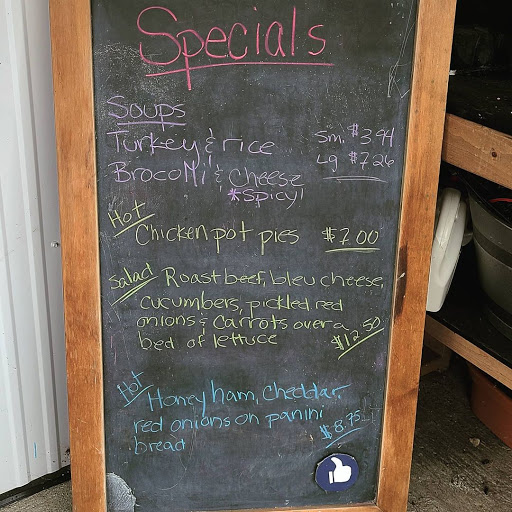 Specials
Soups
Turkey & rice sm. $3.94
Brocolli & cheese Lg $7.26
*Spicy!
Hot
Chicken pot pies $7.00
Salad Roast beef, bleu cheese,
cucumbers, pickled red
onions & carrots over a
bed of lettuce $12.50
Hot
Honey ham, cheddar,
red onions on panini
bread $8.75